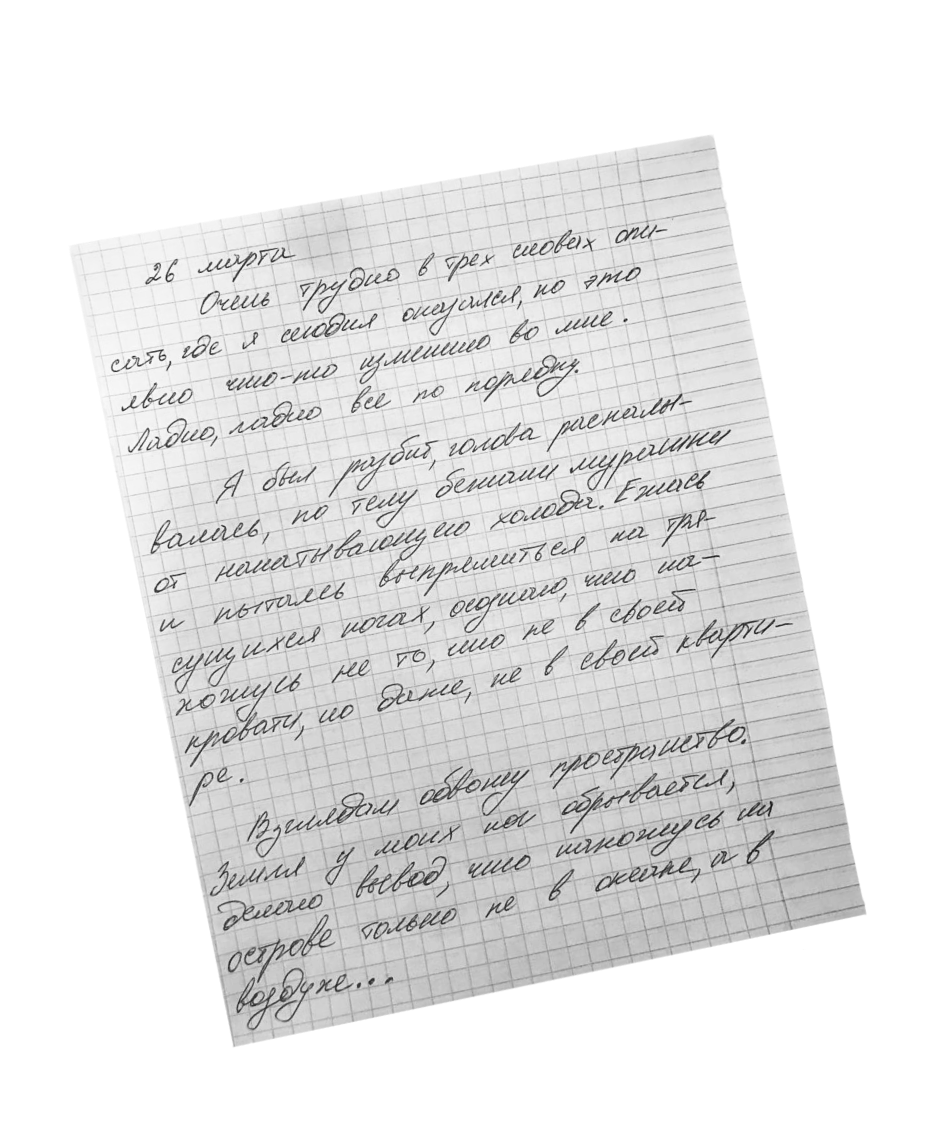 26 марта
Очень трудно в трех словах опи-
сать, где я сегодня оказался, но это
явно что-то изменило во мне.
Ладно, ладно все по порядку.
Я был разбит, голова раскалы-
валась, по телу бежали мурашки
от накатывающего холода. Ежась
и пытаясь выпрямиться на тря-
сущихся ногах, осознаю, что на-
хожусь не то, что не в своей
кровати, но даже, не в своей кварти-
ре.
Взглядом обвожу пространство.
Земля у моих ног обрывается,
делаю вывод, что нахожусь на
острове только не в океане, а в
воздухе...